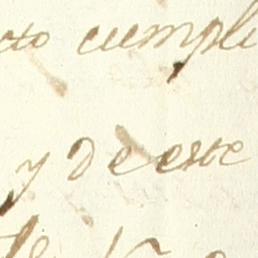 cto cumpli
y de este